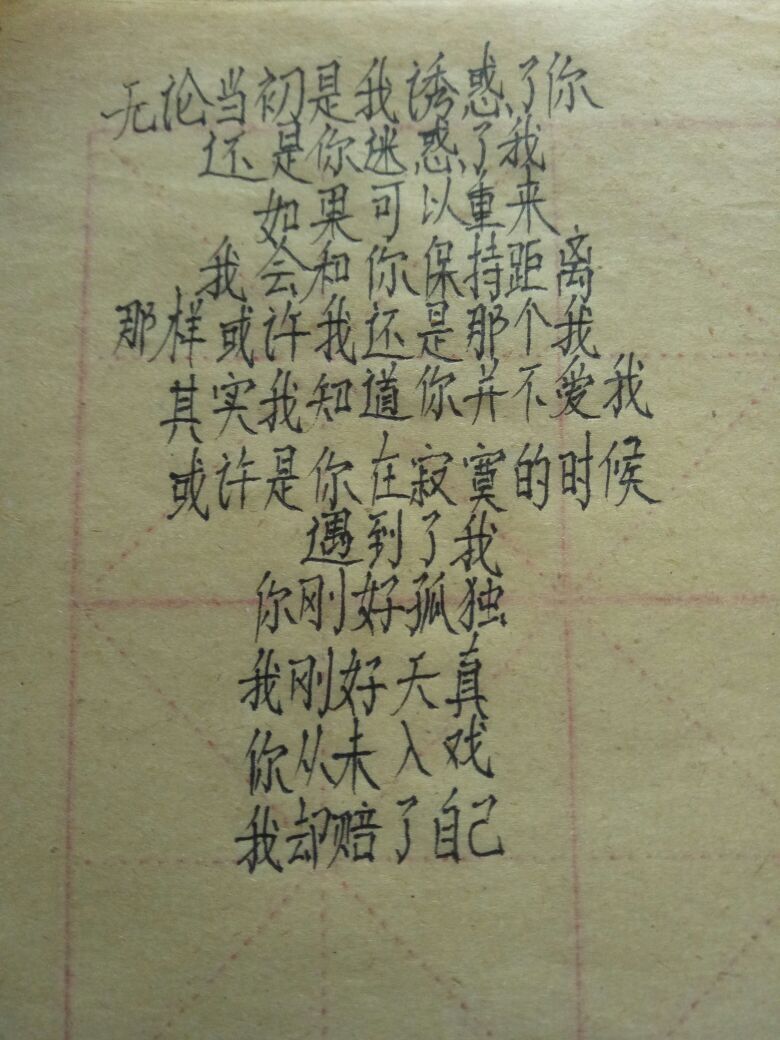 无论当初是我诱惑了你
还是你迷惑了我
如果可以重来
我会和你保持距离
那样或许我还是那个我
其实我知道你并不爱我
或许是你在寂寞的时候
遇到了我
你刚好孤独
我刚好天真
你从未入戏
我却赔了自己